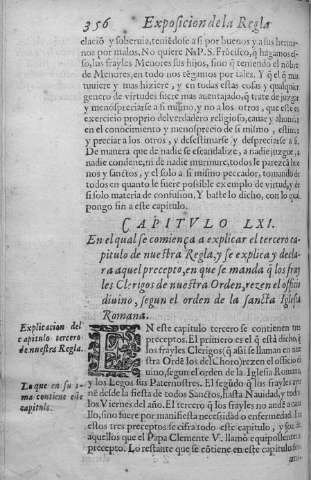 356 Exposicion de la Regla
elaciõ y soberuia, teniẽdose a si por buenos y a sus herma-
nos por malos. No quiere N. P. S. Frãcisco, q̃ hagamos es-
so, los frayles Menores sus hijos, sino q̃ teniendo el nõbre
de Menores, en todo nos tẽgamos por tales. Y q̃ el q̃ mas
tuuiere y mas hiziere, y en todas estas cosas y qualquier
genero de virtudes fuere mas auentajado, q̃ trate de juzgar
y menospreciarse a si mismo, y no a los otros, que este es
exercicio proprio del verdadero religioso, cauar y ahondar
en el conocimiento y menosprecio de si mismo, estimar
y preciar a los otros, y desestimarse y despreciarse a si.
De manera que de nadie se escandalize, a nadie juzgue, a
nadie condene, ni de nadie murmure, todos le parezcã bue-
nos y sanctos, y el solo a si mismo peccador, tomando de
todos en quanto le fuere possible exemplo de virtud, y de
si solo materia de confusion. Y baste lo dicho, con lo qual
pongo fin a este capitulo.
CAPITVLO LXI.
En el qual se comiença a explicar el tercero ca-
pitulo de nuestra Regla, y se explica y decla-
ra aquel precepto, en que se manda q̃ los fray
les Clerigos de nuestra Orden, rezen el officio
diuino, segun el orden de la sancta Iglesia
Romana.
Explicacion del
capitulo tercero
de nuestra Regla.
EN este capitulo tercero se contienen tres
preceptos. El primero es el q̃ està dicho, q̃
los frayles Clerigos (q̃ assi se llaman en nue
stra Ordẽ los del Choro) rezen el officio di
uino, segun el orden de la Iglesia Romana,
Lo que en su su-
ma contiene este
capitulo.
y los Legos sus Paternostres. El segũdo q̃ los frayles ayu
nẽ desde la fiesta de todos Sanctos, hasta Nauidad, y todos
los Viernes del año. El tercero q̃ los frayles no andẽ a caua
llo, sino fuere por manifiesta necessidad o enfermedad. En
estos tres preceptos se cifra todo este capitulo, y son de
aquellos que el Papa Clemente V. llamò equipolentes a
precepto. Lo restante que se cõtiene en este capitulo son